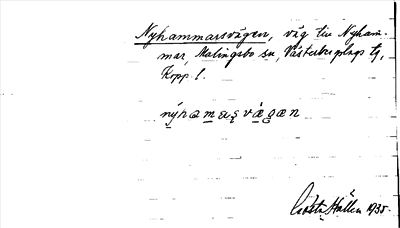 Nyhammarsvägen, väg till Nyham-
mar, Malingsbo sn, Västerbergslags tg,
Kopp. l.
nýhamaʂvægæn
Gösta Hallén 1935.